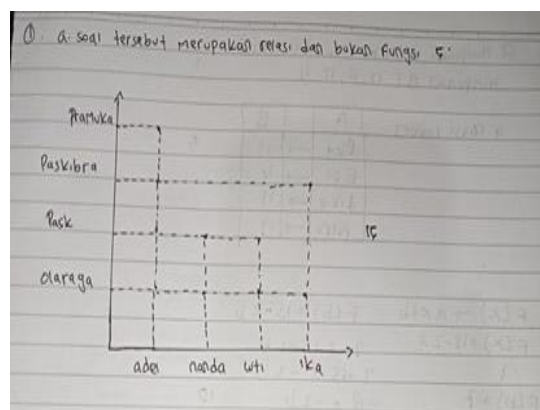 ① a. soal tersebut merupakan relasi dan bukan fungsi 5.
Pramuka
Paskibra
Pask
olaraga
15
ades nanda wti ika